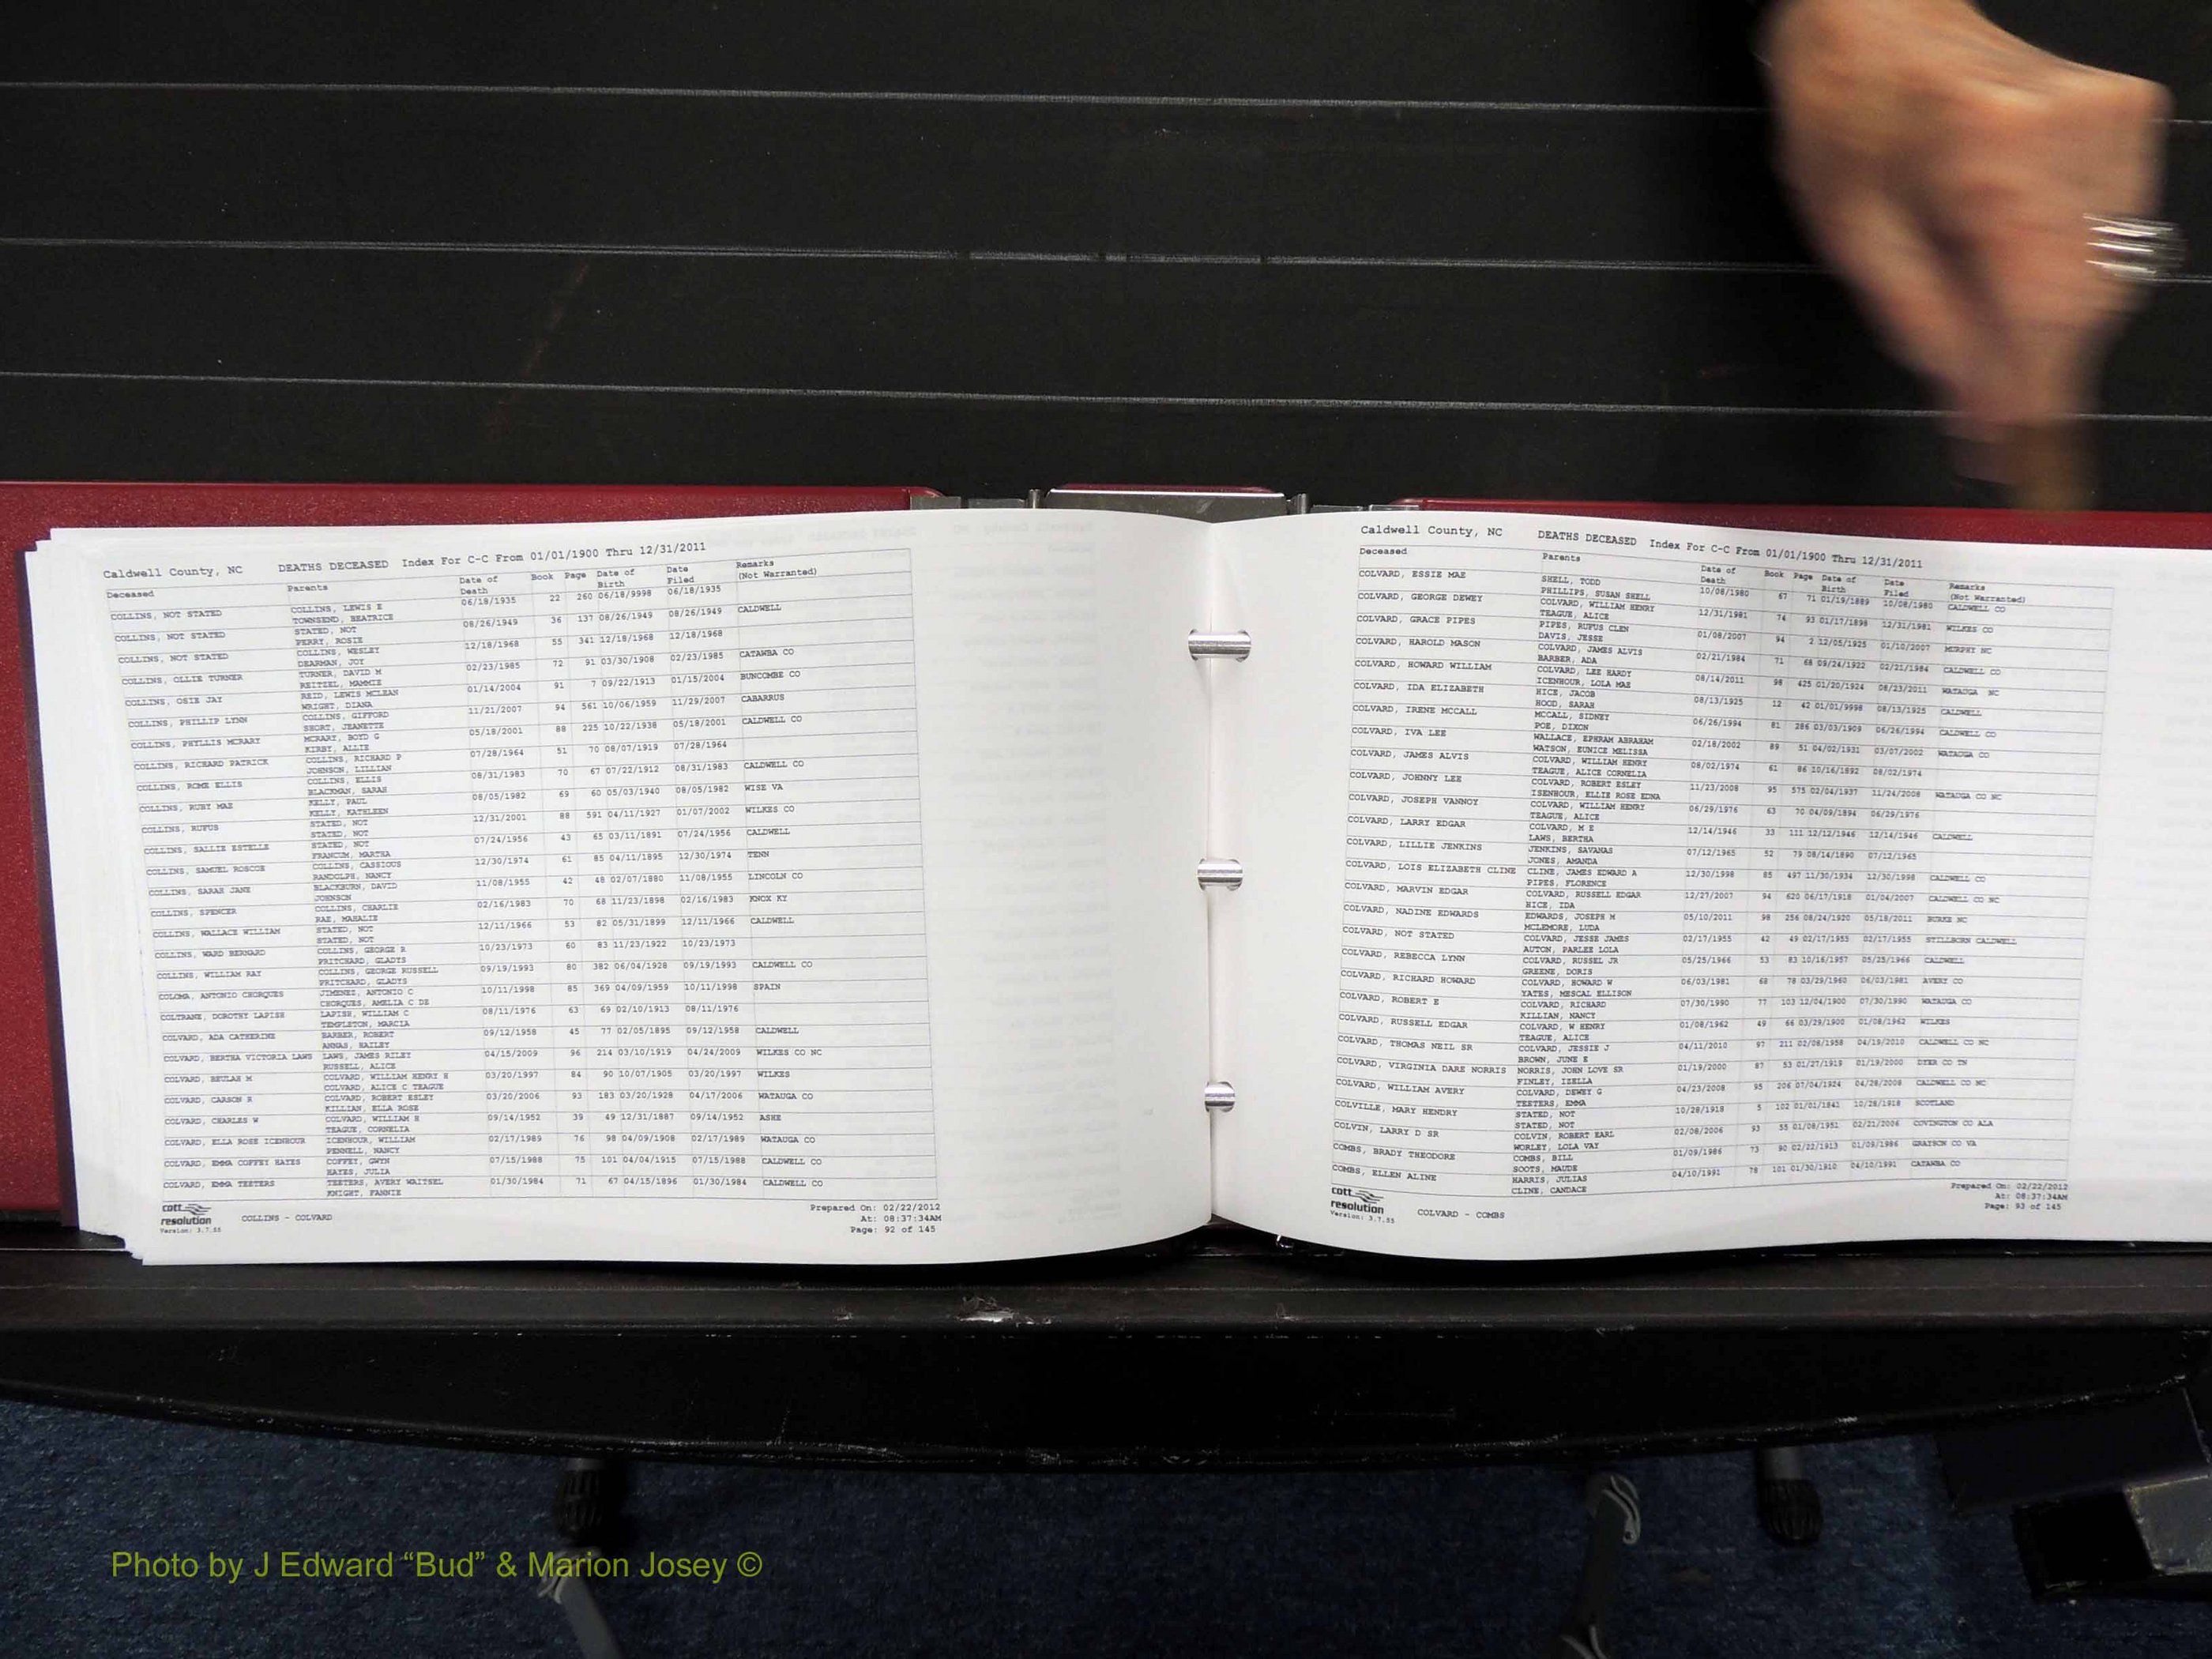 Caldwell County, NC DEATHS DECEASED Index For C-C From 01/01/1900 Thru 12/31/2011
Deceased Parents Date of Death Book Page Date of Birth Date Filed Remarks (Not Warranted)
COLLINS, NOT STATED COLLINS, LEWIS E 06/18/1935 22 260 06/18/9998 06/18/1935
TOWNSEND, BEATRICE
COLLINS, NOT STATED STATED, NOT 08/26/1949 36 137 08/26/1949 08/26/1949 CALDWELL
PERRY, ROSIE
COLLINS, NOT STATED COLLINS, WESLEY 12/18/1968 55 341 12/18/1968 12/18/1968
DEARMAN, JOY
COLLINS, OLLIE TURNER TURNER, DAVID M 02/23/1985 72 91 03/30/1908 02/23/1985 CATAWBA CO
REITZEL, MAMMIE
COLLINS, OSIE JAY REID, LEWIS MCLEAN 01/14/2004 91 7 09/22/1913 01/15/2004 BUNCOMBE CO
WRIGHT, DIANA
COLLINS, PHILLIP LYNN COLLINS, GIFFORD 11/21/2007 94 561 10/06/1959 11/29/2007 CABARRUS
SHORT, JEANETTE
COLLINS, PHYLLIS MCRARY MCRARY, BOYD G 05/18/2001 88 225 10/22/1938 05/18/2001 CALDWELL CO
KIRBY, ALLIE
COLLINS, RICHARD PATRICK COLLINS, RICHARD P 07/28/1964 51 70 08/07/1919 07/28/1964
JOHNSON, LILLIAN
COLLINS, ROME ELLIS COLLINS, ELLIS 08/31/1983 70 67 07/22/1912 08/31/1983 CALDWELL CO
BLACKMAN, SARAH
COLLINS, RUBY MAE KELLY, PAUL 08/05/1982 69 60 05/03/1940 08/05/1982 WISE VA
KELLY, KATHLEEN
COLLINS, RUFUS STATED, NOT 12/31/2001 88 591 04/11/1927 01/07/2002 WILKES CO
STATED, NOT
COLLINS, SALLIE ESTELLE STATED, NOT 07/24/1956 43 65 03/11/1891 07/24/1956 CALDWELL
FRANCUM, MARTHA
COLLINS, SAMUEL ROSCOE COLLINS, CASSIOUS 12/30/1974 61 85 04/11/1895 12/30/1974 TENN
RANDOLPH, NANCY
COLLINS, SARAH JANE BLACKBURN, DAVID 11/08/1955 42 48 02/07/1880 11/08/1955 LINCOLN CO
JOHNSON
COLLINS, SPENCER COLLINS, CHARLIE 02/16/1983 70 68 11/23/1898 02/16/1983 KNOX KY
RAE, MAHALIE
COLLINS, WALLACE WILLIAM STATED, NOT 12/11/1966 53 82 05/31/1899 12/11/1966 CALDWELL
STATED, NOT
COLLINS, WARD BERNARD COLLINS, GEORGE R 10/23/1973 60 83 11/23/1922 10/23/1973
PRITCHARD, GLADYS
COLLINS, WILLIAM RAY COLLINS, GEORGE RUSSELL 09/19/1993 80 382 06/04/1928 09/19/1993 CALDWELL CO
PRITCHARD, GLADYS
COLOMA, ANTONIO CHORQUES JIMENEZ, ANTONIO C 10/11/1998 85 369 04/09/1959 10/11/1998 SPAIN
CHORQUES, AMELIA C DE
COLTRANE, DOROTHY LAPISH LAPISH, WILLIAM C 08/11/1976 63 69 02/10/1913 08/11/1976
TEMPLETON, MARCIA
COLVARD, ADA CATHERINE BARBER, ROBERT 09/12/1958 45 77 02/05/1895 09/12/1958 CALDWELL
ANNAS, HAILEY
COLVARD, BERTHA VICTORIA LAWS LAWS, JAMES RILEY 04/15/2009 96 214 03/10/1919 04/24/2009 WILKES CO NC
RUSSELL, ALICE
COLVARD, BEULAH M COLVARD, WILLIAM HENRY H 03/20/1997 84 90 10/07/1905 03/20/1997 WILKES
COLVARD, ALICE C TEAGUE
COLVARD, CARSON R COLVARD, ROBERT ESLEY 03/20/2006 93 183 03/20/1928 04/17/2006 WATAUGA CO
KILLIAN, ELLA ROSE
COLVARD, CHARLES W COLVARD, WILLIAM H 09/14/1952 39 49 12/31/1887 09/14/1952 ASHE
TEAGUE, CORNELIA
COLVARD, ELLA ROSE ICENHOUR ICENHOUR, WILLIAM 02/17/1989 76 98 04/09/1908 02/17/1989 WATAUGA CO
PENNELL, NANCY
COLVARD, EMMA COFFEY HAYES COFFEY, GWYN 07/15/1988 75 101 04/04/1915 07/15/1988 CALDWELL CO
HAYES, JULIA
COLVARD, EMMA TEETERS TEETERS, AVERY WAITSEL 01/30/1984 71 67 04/15/1896 01/30/1984 CALDWELL CO
KNIGHT, FANNIE
cott resolution
Version: 3.7.55
COLLINS - COLVARD
Prepared On: 02/22/2012
At: 08:37:34AM
Page: 92 of 145
Caldwell County, NC DEATHS DECEASED Index For C-C From 01/01/1900 Thru 12/31/2011
Deceased Parents Date of Death Book Page Date of Birth Date Filed Remarks (Not Warranted)
COLVARD, ESSIE MAE SHELL, TODD 10/08/1980 67 71 01/19/1889 10/08/1980 CALDWELL CO
PHILLIPS, SUSAN SHELL
COLVARD, GEORGE DEWEY COLVARD, WILLIAM HENRY 12/31/1981 74 93 01/17/1898 12/31/1981 WILKES CO
TEAGUE, ALICE
COLVARD, GRACE PIPES PIPES, RUFUS CLEN 01/08/2007 94 2 12/05/1925 01/10/2007 MURPHY NC
DAVIS, JESSE
COLVARD, HAROLD MASON COLVARD, JAMES ALVIS 02/21/1984 71 68 09/24/1922 02/21/1984 CALDWELL CO
BARBER, ADA
COLVARD, HOWARD WILLIAM COLVARD, LEE HARDY 08/14/2011 98 425 01/20/1924 08/23/2011 WATAUGA NC
ICENHOUR, LOLA MAE
COLVARD, IDA ELIZABETH HICE, JACOB 08/13/1925 12 42 01/01/9998 08/13/1925 CALDWELL
HOOD, SARAH
COLVARD, IRENE MCCALL MCCALL, SIDNEY 06/26/1994 81 286 03/03/1909 06/26/1994 CALDWELL CO
POE, DIXON
COLVARD, IVA LEE WALLACE, EPHRAM ABRAHAM 02/18/2002 89 51 04/02/1931 03/07/2002 WATAUGA CO
WATSON, EUNICE MELISSA
COLVARD, JAMES ALVIS COLVARD, WILLIAM HENRY 08/02/1974 61 86 10/16/1892 08/02/1974
TEAGUE, ALICE CORNELIA
COLVARD, JOHNNY LEE COLVARD, ROBERT ESLEY 11/23/2008 95 575 02/04/1937 11/24/2008 WATAUGA CO NC
ISENHOUR, ELLIE ROSE EDNA
COLVARD, JOSEPH VANNOY COLVARD, WILLIAM HENRY 06/29/1976 63 70 04/09/1894 06/29/1976
TEAGUE, ALICE
COLVARD, LARRY EDGAR COLVARD, M E 12/14/1946 33 111 12/12/1946 12/14/1946 CALDWELL
LAWS, BERTHA
COLVARD, LILLIE JENKINS JENKINS, SAVANAS 07/12/1965 52 79 08/14/1890 07/12/1965
JONES, AMANDA
COLVARD, LOIS ELIZABETH CLINE CLINE, JAMES EDWARD A 12/30/1998 85 497 11/30/1934 12/30/1998 CALDWELL CO
PIPES, FLORENCE
COLVARD, MARVIN EDGAR COLVARD, RUSSELL EDGAR 12/27/2007 94 620 06/17/1918 01/04/2007 CALDWELL CO NC
HICE, IDA
COLVARD, NADINE EDWARDS EDWARDS, JOSEPH M 05/10/2011 98 256 08/24/1920 05/18/2011 BURKE NC
MCLEMORE, LUDA
COLVARD, NOT STATED COLVARD, JESSE JAMES 02/17/1955 42 49 02/17/1955 02/17/1955 STILLBORN CALDWELL
AUTON, PARLEE LOLA
COLVARD, REBECCA LYNN COLVARD, RUSSEL JR 05/25/1966 53 83 10/16/1957 05/25/1966 CALDWELL
GREENE, DORIS
COLVARD, RICHARD HOWARD COLVARD, HOWARD W 06/03/1981 68 78 03/29/1960 06/03/1981 AVERY CO
YATES, MESCAL ELLISON
COLVARD, ROBERT E COLVARD, RICHARD 07/30/1990 77 103 12/04/1900 07/30/1990 WATAUGA CO
KILLIAN, NANCY
COLVARD, RUSSELL EDGAR COLVARD, W HENRY 01/08/1962 49 66 03/29/1900 01/08/1962 WILKES
TEAGUE, ALICE
COLVARD, THOMAS NEIL SR COLVARD, JESSIE J 04/11/2010 97 211 02/08/1958 04/19/2010 CALDWELL CO NC
BROWN, JUNE E
COLVARD, VIRGINIA DARE NORRIS NORRIS, JOHN LOVE SR 01/19/2000 87 53 01/27/1919 01/19/2000 DYER CO TN
FINLEY, IZELLA
COLVARD, WILLIAM AVERY COLVARD, DEWEY G 04/23/2008 95 206 07/04/1924 04/28/2008 CALDWELL CO NC
TEETERS, EMMA
COLVILLE, MARY HENDRY STATED, NOT 10/28/1918 5 102 01/01/1841 10/28/1918 SCOTLAND
STATED, NOT
COLVIN, LARRY D SR COLVIN, ROBERT EARL 02/08/2006 93 55 01/08/1951 02/21/2006 COVINGTON CO ALA
WORLEY, LOLA VAY
COMBS, BRADY THEODORE COMBS, BILL 01/09/1986 73 90 02/22/1913 01/09/1986 GRAYSON CO VA
SOOTS, MAUDE
COMBS, ELLEN ALINE HARRIS, JULIAS 04/10/1991 78 101 01/30/1910 04/10/1991 CATAWBA CO
CLINE, CANDACE
cott resolution
Version: 3.7.55
COLVARD - COMBS
Prepared On: 02/22/2012
At: 08:37:34AM
Page: 93 of 145
Photo by J Edward “Bud” & Marion Josey ©